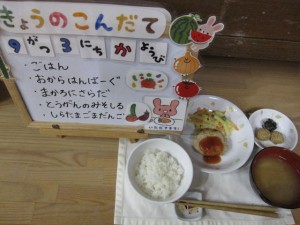 きょうのこんだて
9がつ3にちかようび
・ごはん
・おからはんばーぐ
・まかろにさらだ
・とうがんのみそしる
・しらたまごまだんご
いただきます